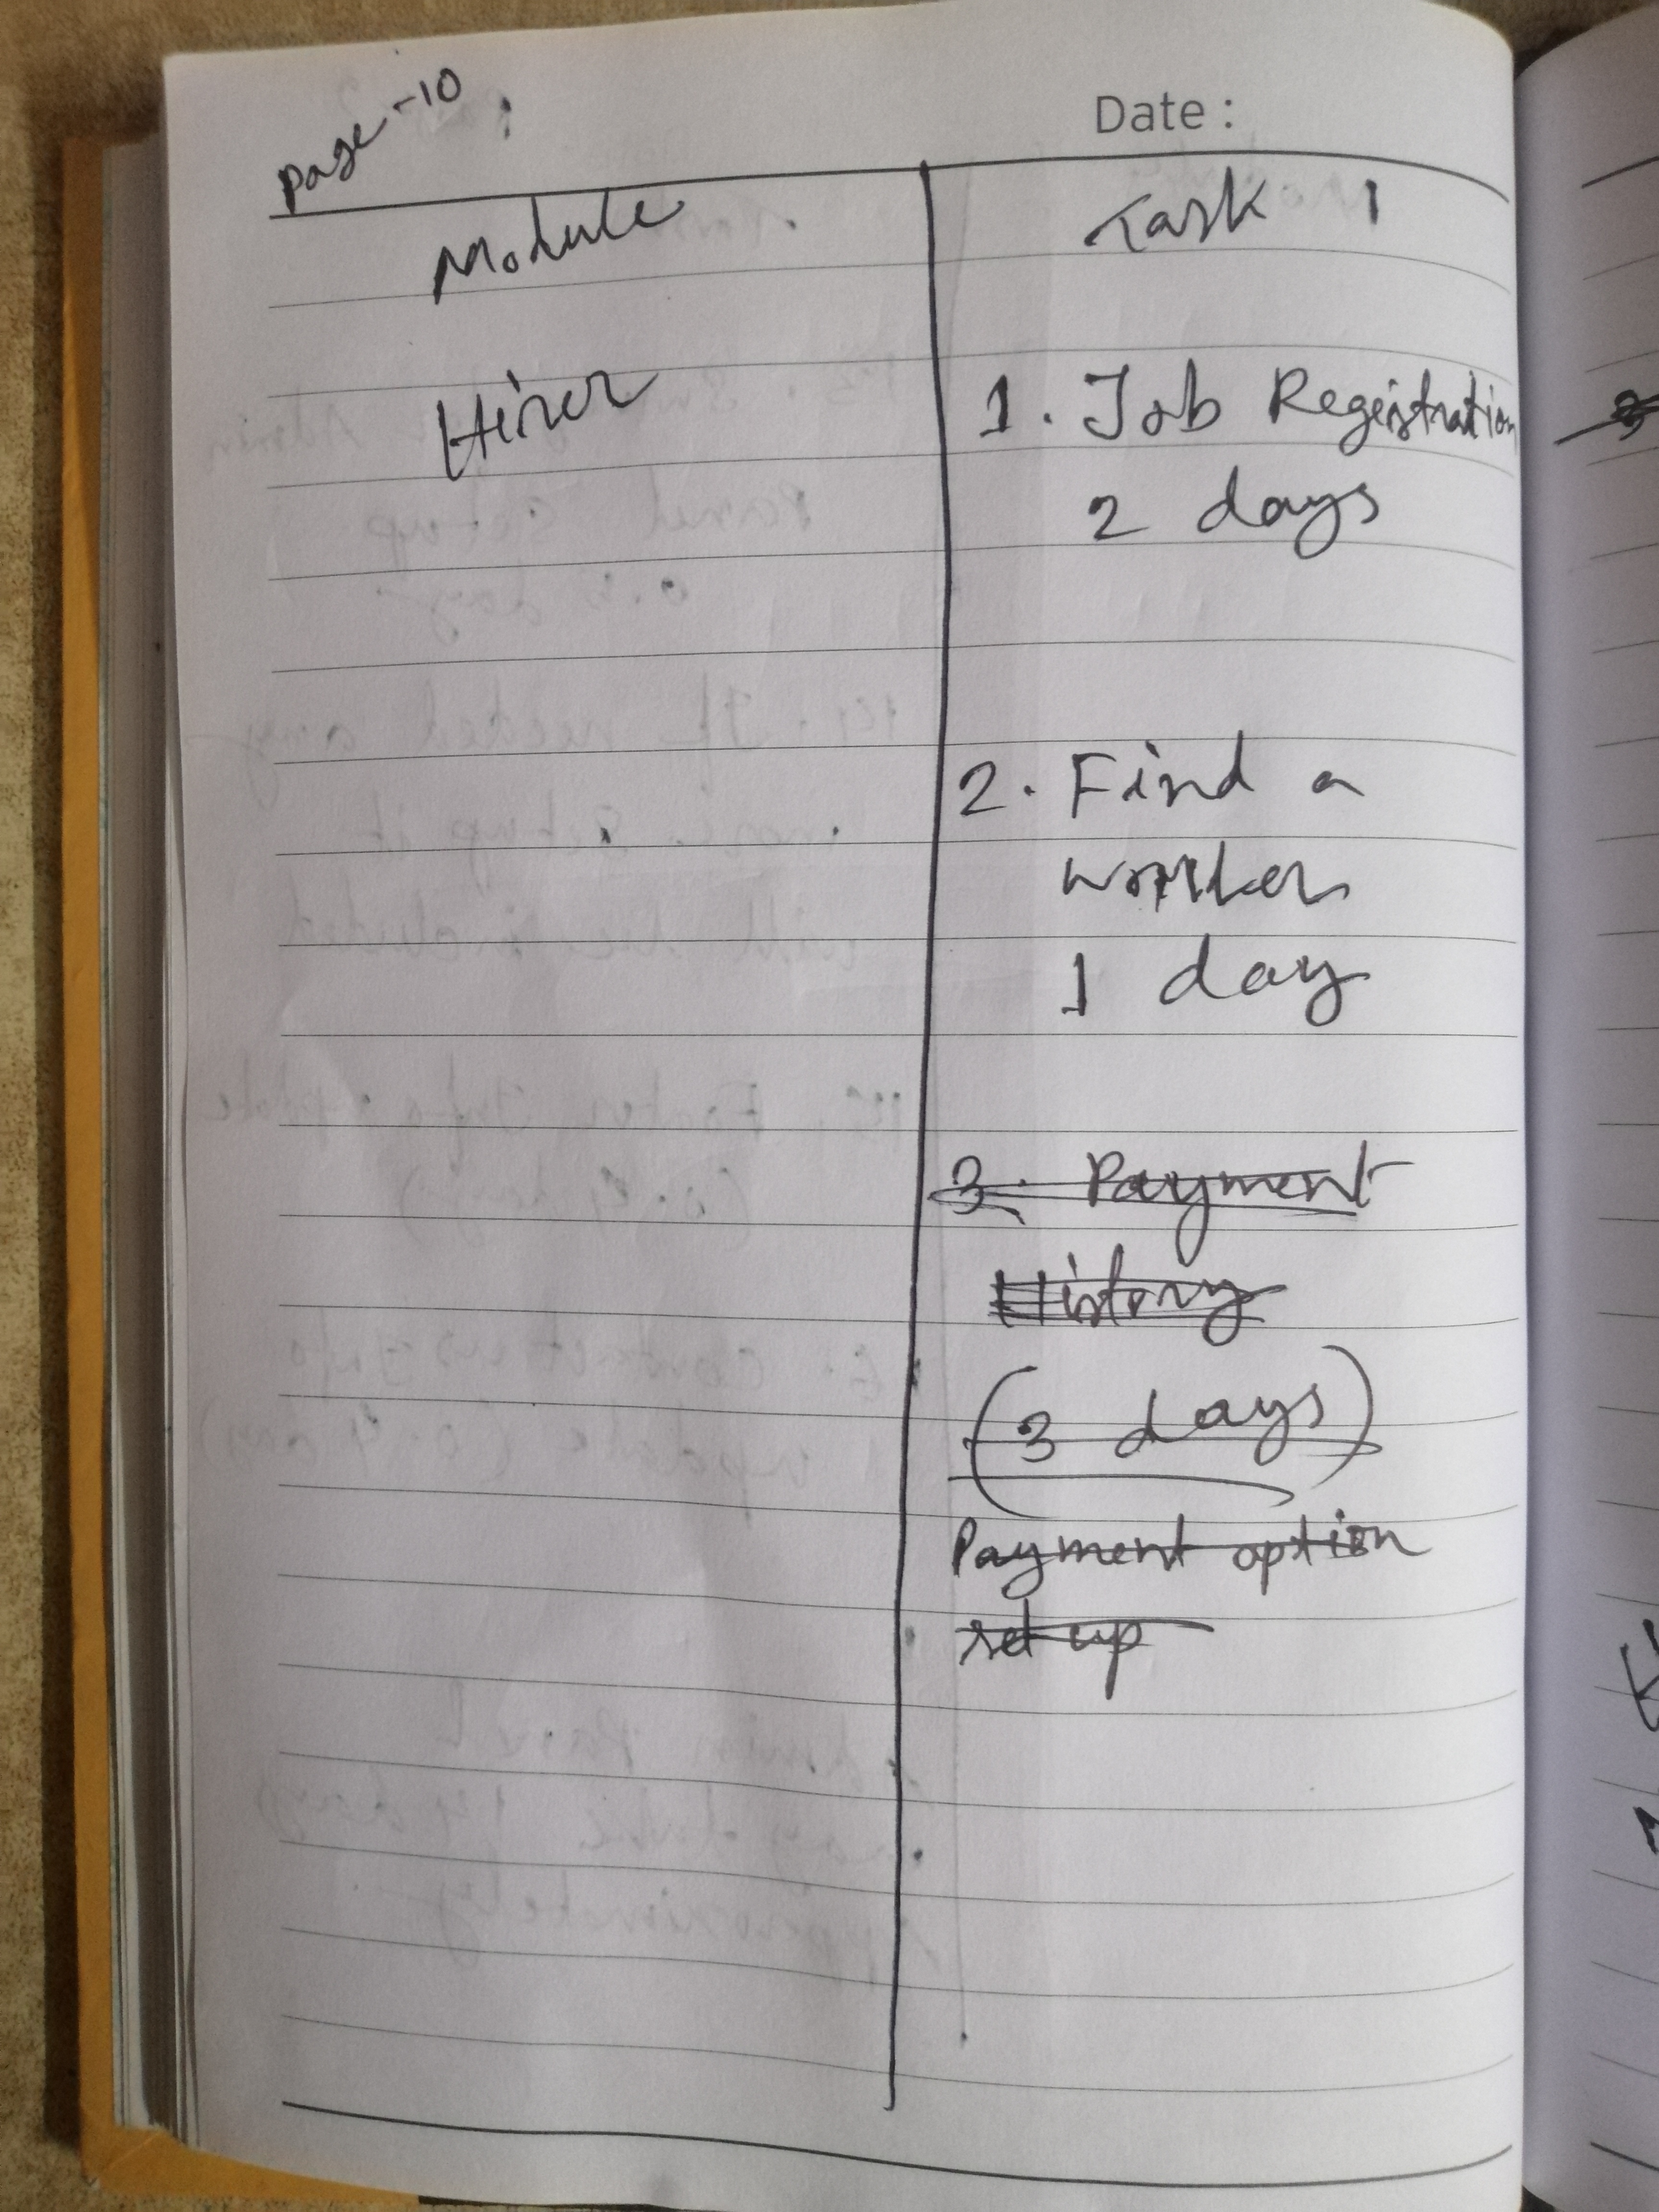 Page-10
Date :
Module
Task 1
Hirer
1. Job Registration
2 days
2. Find a
worker
1 day
3. Payment
History
(3 days)
Payment option
set up